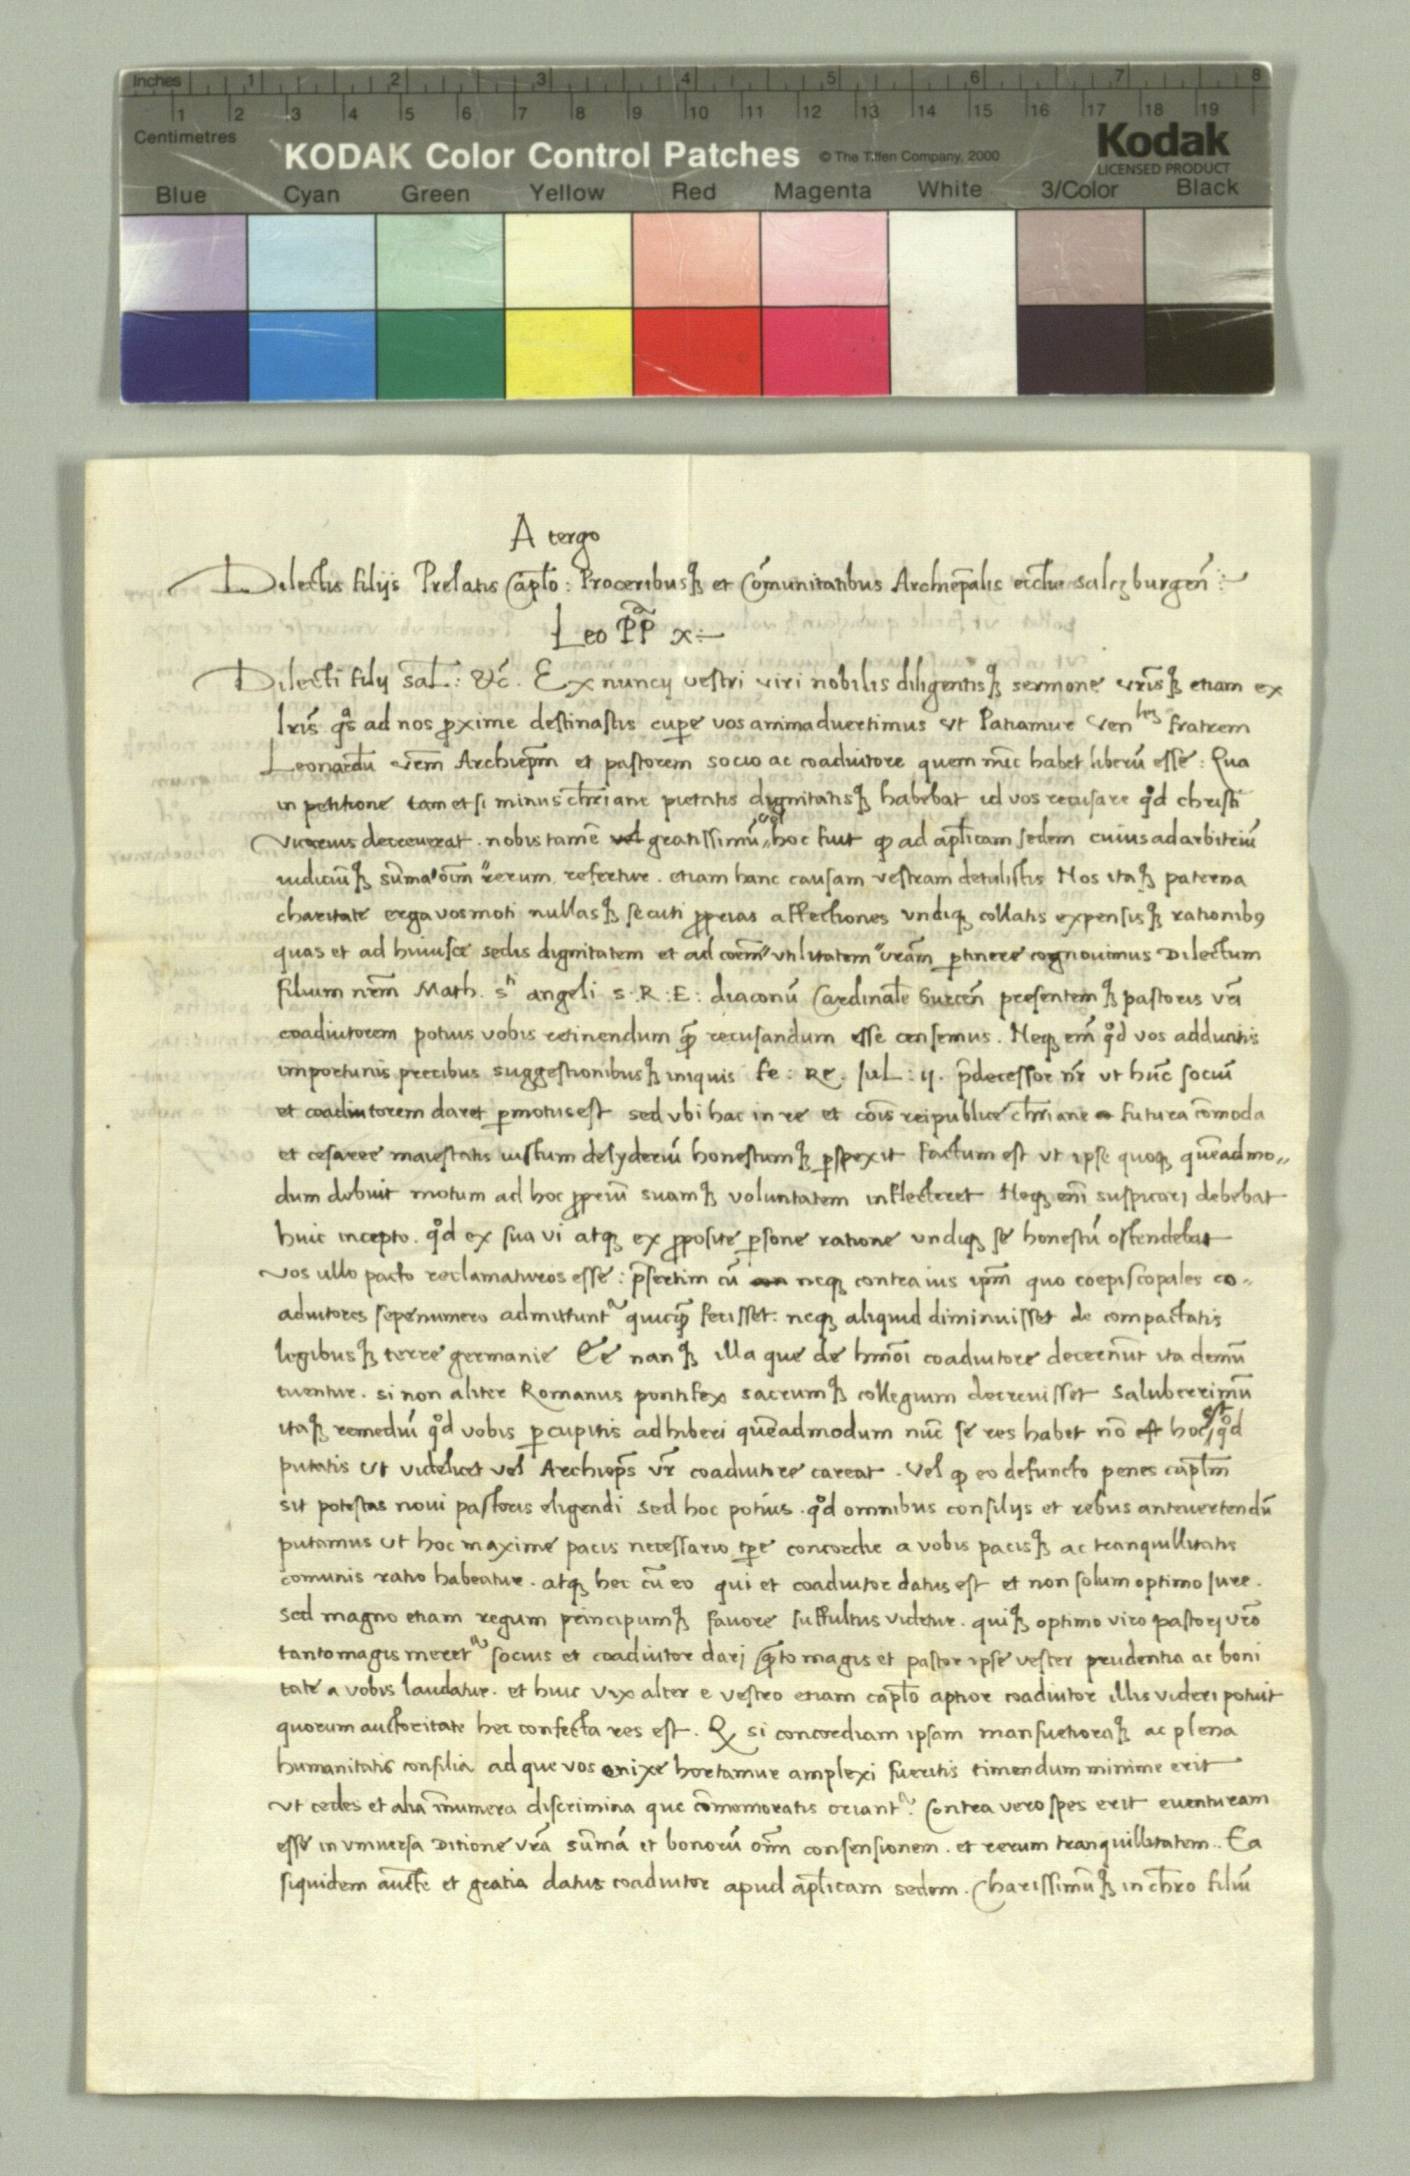 Inches 1 2 3 4 5 6 7 8
1 2 3 4 5 6 7 8 9 10 11 12 13 14 15 16 17 18 19
Centimetres
KODAK Color Control Patches © The Tiffen Company, 2000 Kodak
LICENSED PRODUCT
Blue Cyan Green Yellow Red Magenta White 3/Color Black
A tergo
Dilectis filijs Prelatis Capło : Proceribusqȝ et Cōmunitatibus Archiep̄alis eccłie Salczburgeń
Leo P̄P̄ x
Dilecti filij sał : &c̄. Ex nuncij vestri viri nobilis diligentisqȝ sermone vr̄isqȝ etiam ex
lr̄is q̊s ad nos ꝓxime destinastis cupe̱ vos animaduertimus vt Patiamur Venlēs fratrem
Leonardū vr̄m Archiep̄m et pastorem socio ac coadiutore quem nūc habet liberū esse : Qua
in petitione tametsi minus chr̄iane pietatis dignitatisqȝ habebat id vos recusare q̊d christi
vicarius decreuerat . nobis tamē gratissimū vel hoc fuit ꝙ ad apłicam sedem cuius ad arbitriū
iudiciūqȝ sūma oīm rerum refertur . etiam hanc causam vestram detulistis Nos itaqȝ paterna
charitate erga vos moti nullasqȝ secuti ꝓprias affectiones vndiqȝ collatis expensisqȝ rationibꝯ
quas et ad huiusce sedis dignitatem et ad coēm vtilitatem vrām ꝑtinere cognouimus Dilectum
filium nr̄m Math. Sti angeli S . R : E : diaconū Cardinałe Gurceń presentemqȝ pastoris vr̄i
coadiutorem potius vobis retinendum qꝫ recusandum esse censemus . Neqȝ em̄ q̊d vos adducitis
importunis precibus suggestionibusqȝ iniquis fe : Re . Jul : ij . p̄decessor nr̄ vt hūc sociū
et coadiutorem daret ꝑmotus est sed vbi hac in re et cōis reipublice chr̄iane futura cōmoda
et cesaree maiestatis iustum desyderiū honestumqȝ ꝑspexit factum est vt ipse quoqȝ quēadmo„
dum debuit motum ad hoc ꝓpriū suamqȝ voluntatem inflecteret Neqȝ em̄ suspicari debebat
huic incepto . q̊d ex sua vi atqȝ ex ꝓposite ꝑsone ratione vndiqȝ se honestū ostendebat
vos ullo pacto reclamaturos esse : p̄sertim cū neqȝ contra ius ipm̄ quo coepiscopales co„
adiutores sepenumero admittunt̃ quicqꝫ fecisset : neqȝ aliquid diminuisset de compactatis
legibusqȝ terre germanie Ee nanqȝ illa que de hm̄oi coadiutore decernūt ita demū
tuentur . si non aliter Romanus pontifex sacrumqȝ collegium decreuisset Saluberrimū
itaqȝ remediū q̊d vobis ꝑcupitis adhiberi quēadmodum nūc se res habet nō hoc est q̊d
putatis Ut videlicet vel Archiep̄s vr̄ coadiutore careat . Vel ꝙ eo defuncto penes capłm
sit potestas noui pastoris eligendi sed hoc potius . q̊d omnibus consilijs et rebus anteuertendū
putamus Ut hoc maxime pacis necessario tp̄e concordie a vobis pacisqȝ ac tranquillitatis
comunis ratio habeatur . atqȝ hec cū eo qui et coadiutor datus est et non solum optimo jure .
sed magno etiam regum principumqȝ fauore suffultus videtur . quiqȝ optimo viro pastori vrō
tantomagis meret̃ socius et coadiutor dari qꝫto magis et pastor ipse vester prudentia ac boni
tate a vobis laudatur . et huic vix alter e vestro etiam capło aptior coadiutor illis videri potuit
quorum auctoritate hec confecta res est . Qꝫ si concordiam ipsam mansuetioraqȝ ac plena
humanitatis consilia ad que vos enixe hortamur amplexi fueritis timendum minime erit
Vt cedes et alia īnumera discrimina que cōmemoratis oriant̃ . Contra vero spes erit euenturam
esse in vniuersa Ditione vrā sūmā et bonorū oīm consensionem . et rerum tranquillitatem . Ea
siquidem aūcte et gratia datus coadiutor apud apłicam sedem . Charissimūqȝ in chr̄o filiū